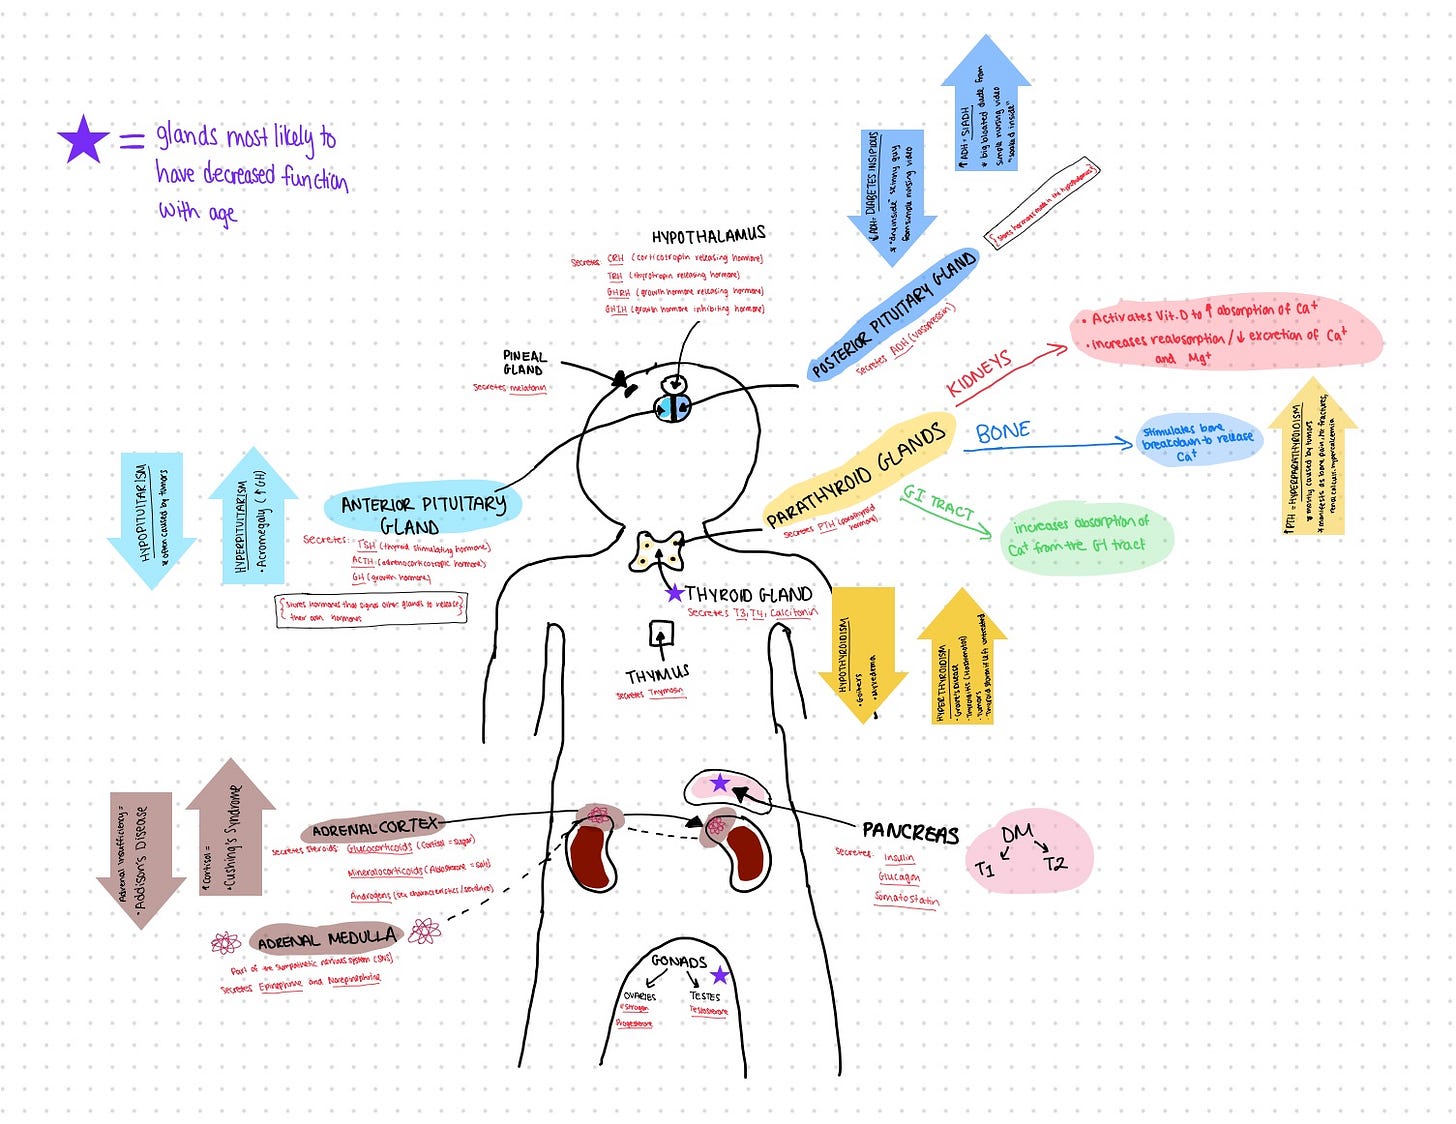 = glands most likely to
have decreased function
with age
↑ADH: SIADH
* big bloated dude from
simple nursing video
"soaked inside"
↓ADH: DIABETES INSIPIDUS
* "dry inside" skinny guy
from simple nursing video
{stores hormones made in the hypothalamus}
POSTERIOR PITUITARY GLAND
secretes ADH (vasopressin)
HYPOTHALAMUS
Secretes: CRH (corticotropin releasing hormone)
TRH (thyrotropin releasing hormone)
GHRH (growth hormone releasing hormone)
GHIH (growth hormone inhibiting hormone)
PINEAL
GLAND
Secretes: melatonin
KIDNEYS
• Activates Vit. D to ↑ absorption of Ca+
• Increases reabsorption/↓ excretion of Ca+
and Mg+
BONE
Stimulates bone
breakdown to release
Ca+
GI TRACT
increases absorption of
Ca+ from the GI tract
PARATHYROID GLANDS
Secretes PTH (parathyroid
hormone)
↑PTH = HYPERPARATHYROIDISM
* mostly caused by tumors
* manifests as bone pain, hx fractures,
renal calculi, hypercalcemia
HYPOPITUITARISM
* often caused by tumors
HYPERPITUITARISM
• Acromegaly (↑GH)
ANTERIOR PITUITARY
GLAND
Secretes: TSH (thyroid stimulating hormone)
ACTH (adrenocorticotropic hormone)
GH (growth hormone)
{stores hormones that signal other glands to release}
their own hormones
THYROID GLAND
Secretes T3, T4, Calcitonin
HYPOTHYROIDISM
• Goiters
• Myxedema
HYPERTHYROIDISM
• Grave's Disease
• Thyroiditis (Hashimotos)
• Tumors
• Thyroid storm if left untreated
THYMUS
Secretes Thymosin
Adrenal Insufficiency =
• Addison's Disease
↑ Cortisol =
• Cushing's Syndrome
ADRENAL CORTEX
Secretes steroids: Glucocorticoids (Cortisol = sugar)
Mineralocorticoids (Aldosterone = salt)
Androgens (sex characteristics/sex drive)
ADRENAL MEDULLA
Part of the sympathetic nervous system (SNS)
Secretes Epinephrine and Norepinephrine
PANCREAS
Secretes: Insulin
Glucagon
Somatostatin
DM
T1 T2
GONADS
OVARIES TESTES
estrogen Testosterone
Progesterone